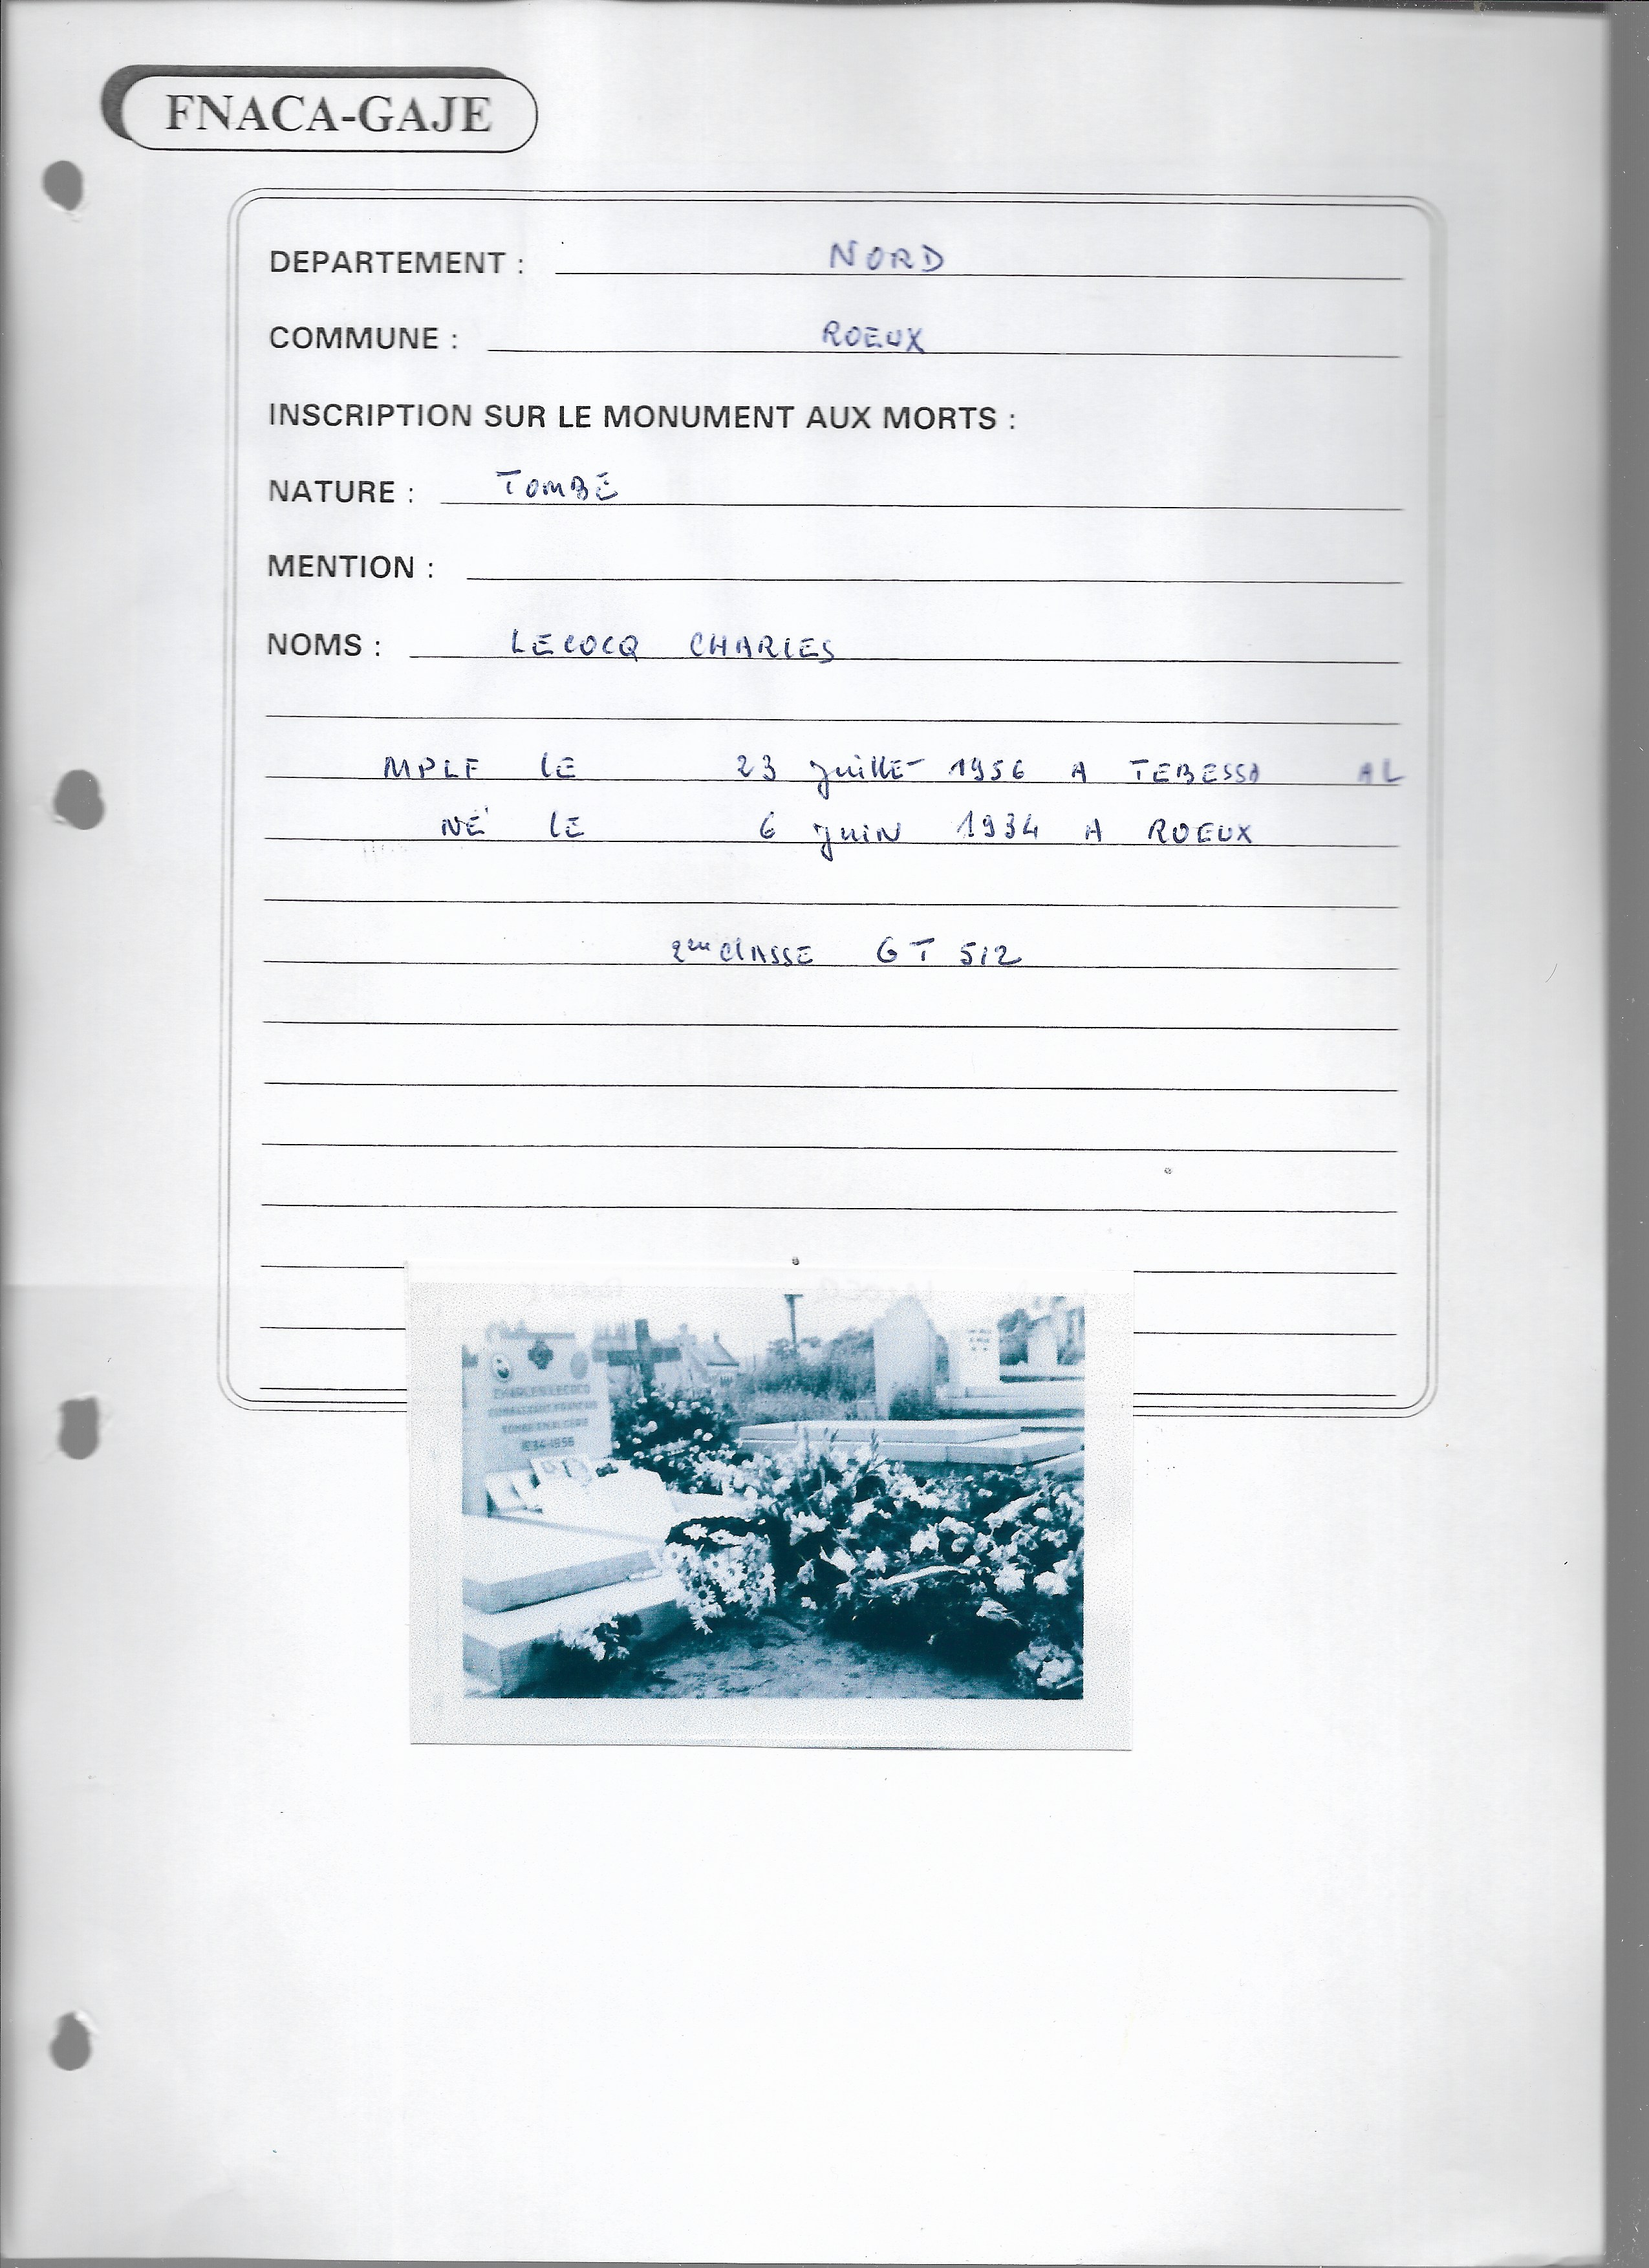 FNACA-GAJE
DEPARTEMENT : NORD
COMMUNE : ROEUX
INSCRIPTION SUR LE MONUMENT AUX MORTS :
NATURE : TOMBE
MENTION :
NOMS : LECOCQ CHARLES
MPLF LE 23 juillet 1956 A TEBESSA AL
NÉ LE 6 juin 1934 A ROEUX
2em CLASSE GT 512
CHARLES LECOCQ
COMBATTANT FRANÇAIS
TOMBE EN ALGERIE
1934-1956